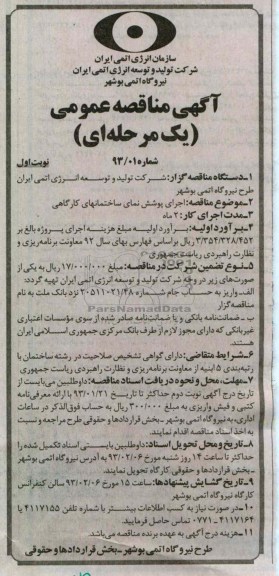 سازمان انرژی اتمی ایران
شرکت تولید و توسعه انرژی اتمی ایران
نیروگاه اتمی بوشهر
آگهی مناقصه عمومی
(یک مرحله‌ای)
شماره ۹۳/۰۱
نوبت اول
۱-دستگاه مناقصه گزار: شرکت تولید و توسعه انرژی اتمی ایران
طرح نیروگاه اتمی بوشهر
۲-موضوع مناقصه: اجرای پوشش نمای ساختمانهای کارگاهی
۳-مدت اجرای کار: ۲ ماه
۴-برآورد اولیه: برآورد اولیه مبلغ هزینه اجرای پروژه بالغ بر
۳/۳۵۴/۳۲۸/۴۵۲ ریال براساس فهارس بهای سال ۹۲ معاونت برنامه‌ریزی و
نظارت راهبردی ریاست جمهوری
۵-نوع تضمین شرکت در مناقصه: مبلغ ۱۷/۰۰۰/۰۰۰ ریال به یکی از
صورت‌های زیر در وجه شرکت تولید و توسعه انرژی اتمی ایران تهیه گردد:
الف-واریز به حساب جام شماره ۲۱/۴۸-۲۰۵۱۱ نزد بانک ملت به نام
مناقصه گزار
ParsNamadData
ب-ضمانت‌نامه بانکی و یا ضمانت‌نامه صادر شده از سوی مؤسسات اعتباری
غیربانکی که دارای مجوز لازم از طرف بانک مرکزی جمهوری اسلامی ایران
هستند
۶-شرایط متقاضی: دارای گواهی تشخیص صلاحیت در رشته ساختمان با
رتبه‌بندی ۵ ابنیه از معاونت برنامه‌ریزی و نظارت راهبردی ریاست جمهوری
۷-مهلت، محل و نحوه دریافت اسناد مناقصه: داوطلبین می‌بایست از
تاریخ درج آگهی نوبت دوم حداکثر تا تاریخ ۹۳/۰۱/۲۱ با ارائه معرفی‌نامه
کتبی و فیش واریزی به مبلغ ۳۰۰/۰۰۰ ریال به حساب فوق‌الذکر در ساعات
اداری، به نیروگاه اتمی بوشهر - بخش قراردادها و حقوقی طرح مراجعه و نسبت
به اخذ اسناد مناقصه اقدام نمایند.
۸-تاریخ و محل تحویل اسناد: داوطلبین بایستی اسناد تکمیل شده را
حداکثر تا ساعت ۱۴ روز شنبه مورخ ۹۳/۰۲/۰۶ به آدرس نیروگاه اتمی بوشهر
- بخش قراردادها و حقوقی کارگاه تحویل نمایند.
۹-تاریخ گشایش پیشنهادها: ساعت ۱۵ مورخ ۹۳/۰۲/۰۶ سالن کنفرانس
کارگاه نیروگاه اتمی بوشهر
۱۰-در صورت نیاز به کسب اطلاعات بیشتر با شماره تلفن ۴۱۱۷۱۵۵ یا
۴۱۱۷۱۶۴-۰۷۷۱ تماس حاصل فرمایید.
۱۱-هزینه درج آگهی به عهده برنده مناقصه می‌باشد.
طرح نیروگاه اتمی بوشهر-بخش قراردادها و حقوقی